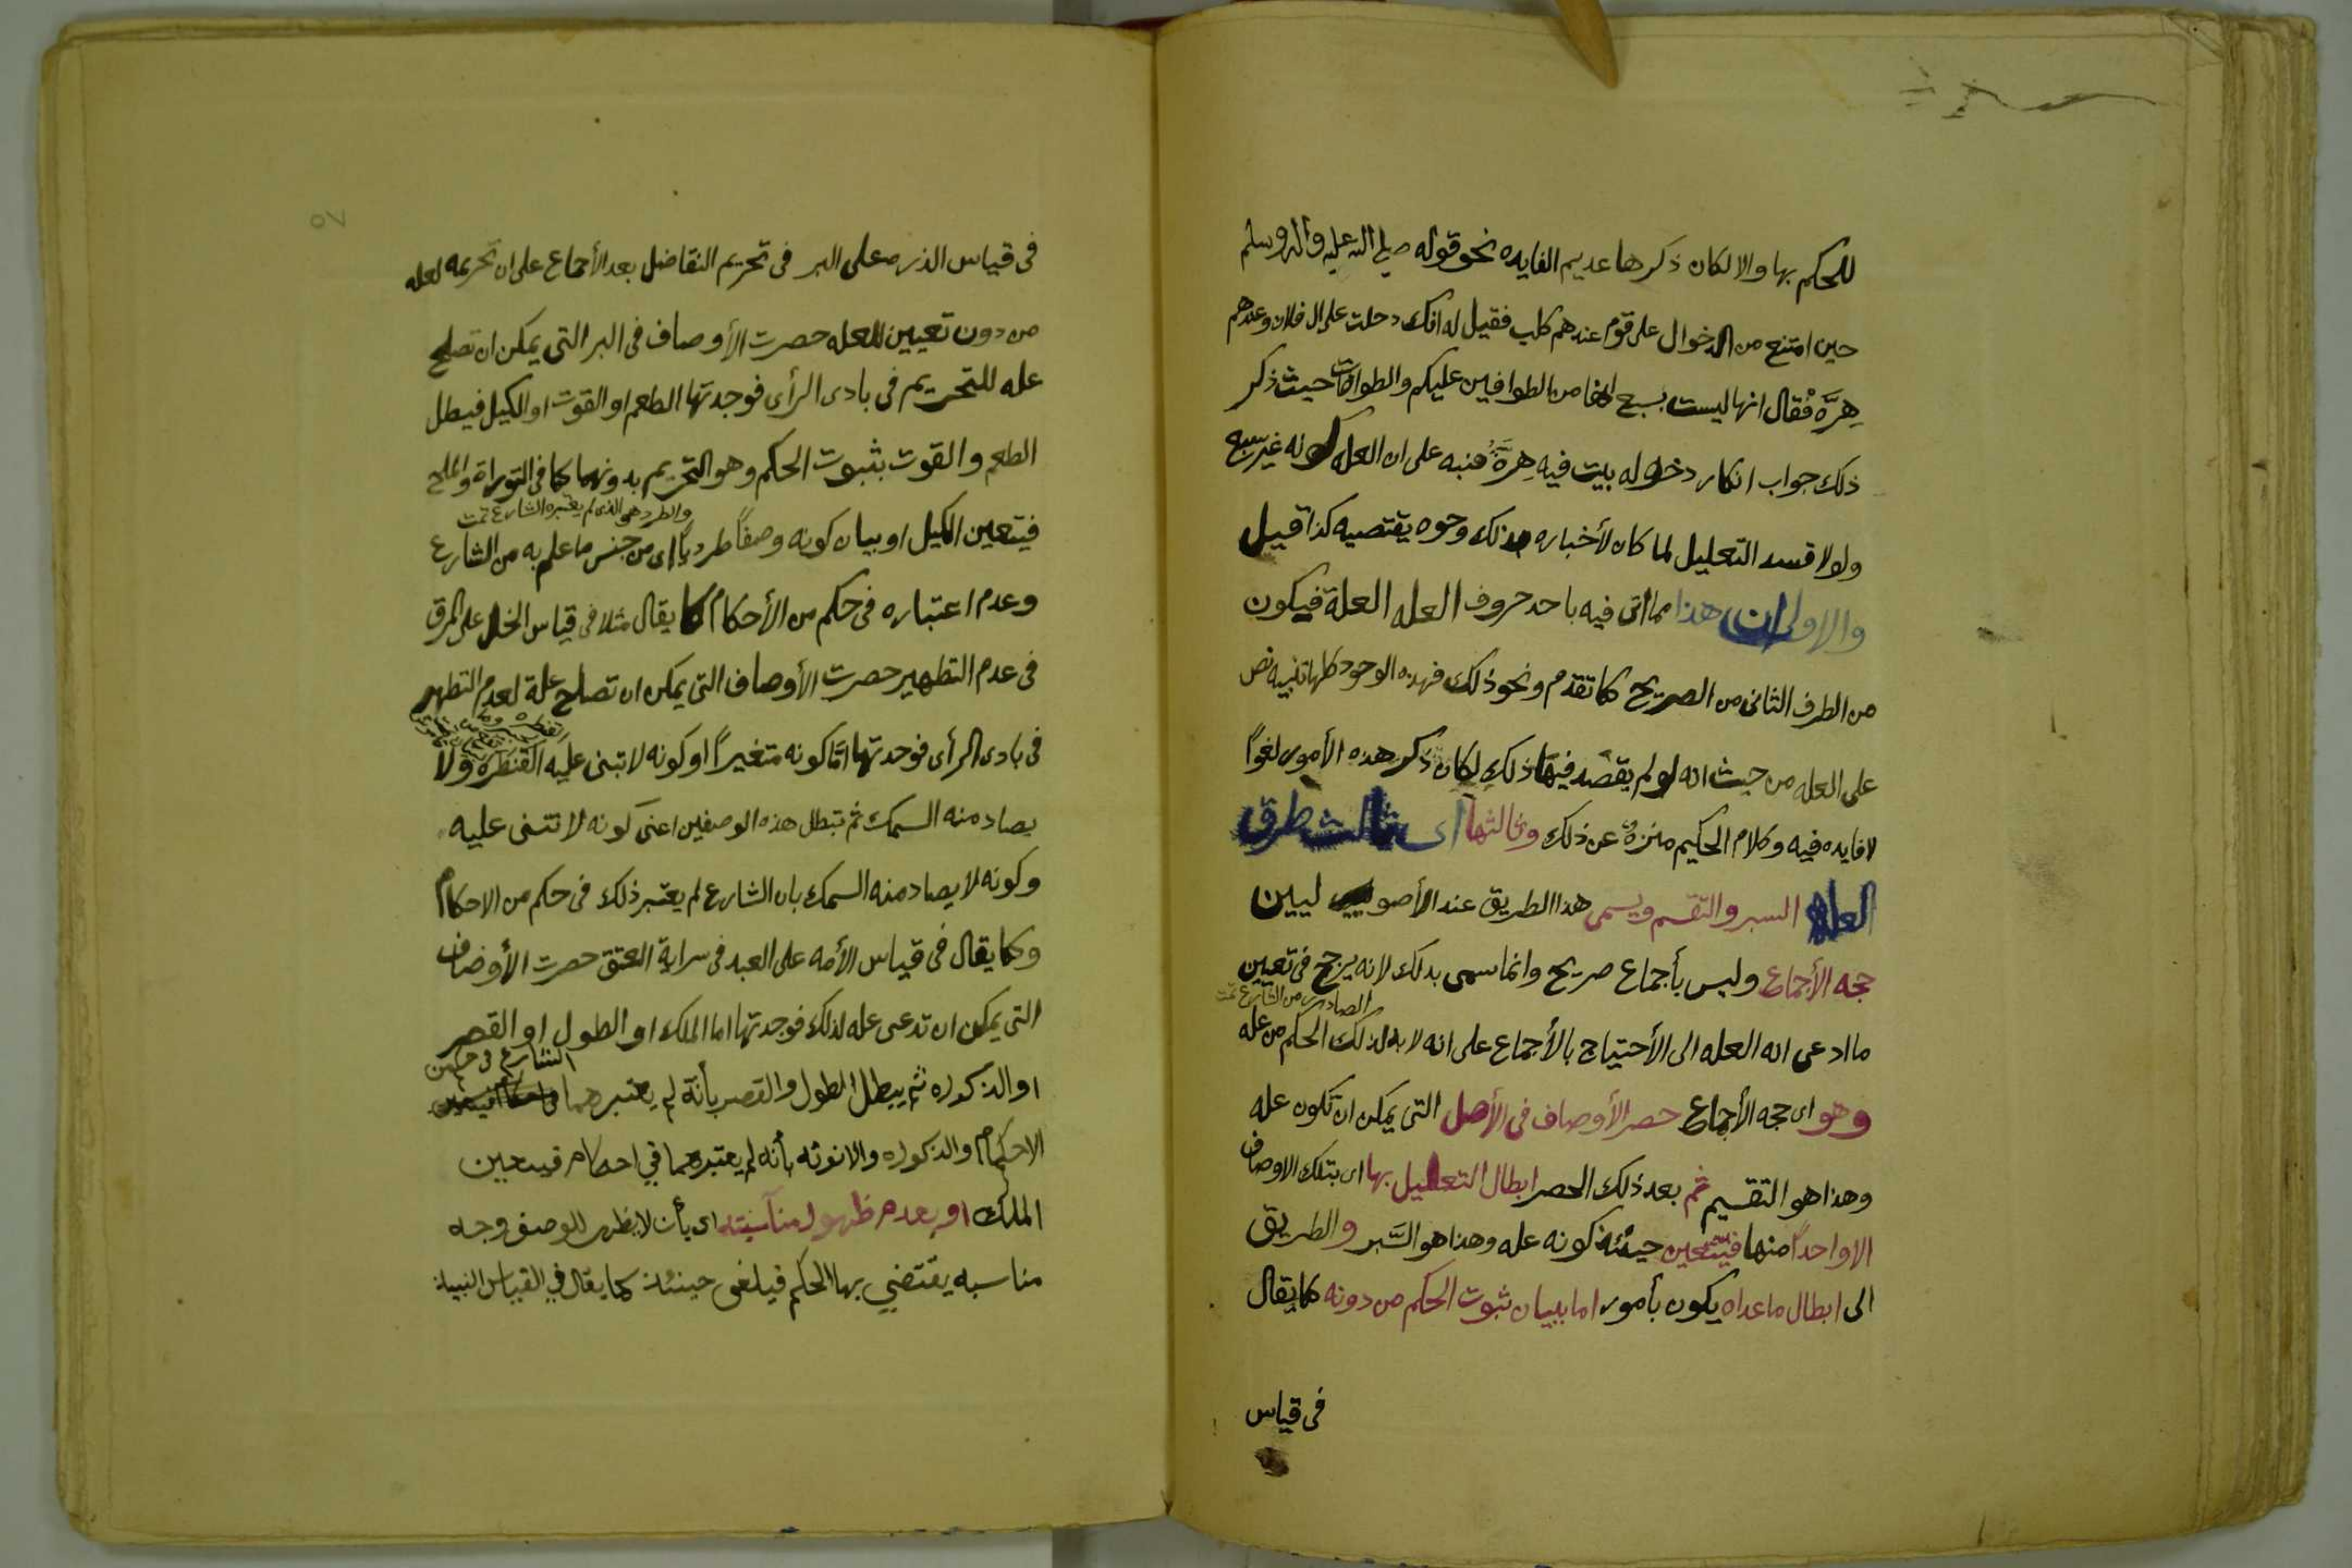 للحكم بها والا لكان ذكرها عديم الفايده نحو قوله صلى الله عليه واله وسلم
حين امتنع من الدخوال على قوم عندهم كلب فقيل له انك دحلت على ال فلان وعندهم
هِرَّه فقال انها ليست بسبع انها من الطوافين عليكم والطوافات حيث ذكر
ذلك جواب انكار دخوله بيت فيه هِرَّة فنبه على ان العله كونه غير سبع
ولولا قسد التعليل لما كان لأخباره بذلك وحوه يقتصيه كذا قيل
والاولى ان هذا مما اتى فيه باحد حروف العله العلة فيكون
من الطرف الثانى من الصريح كما تقدم ونحو ذلك فهذه الوحود كلها تنبيه نص
على العله من حيث انه لو لم يقصد فيها ذلك لكان ذكر هذه الأمور لغوًا
لا فايده فيه وكلام الحكيم منزهٌ عن ذلك وثالثها اى ثالث طرق
العله السبر والتقسم ويسمى هذا الطريق عند الأصو ليين
حجه الأجماع وليس بأجماع صريح وانما سمى بدلك لانه يرجح فى تعيين
الصادر من الشارع تمت
ما ادعى انه العله الى الأحتياج بالأجماع على انه لا بد لذلك الحكم من عله
وهو اى حجه الأجماع حصر الأوصاف فى الأصل التى يمكن ان تكون عله
وهذا هو التقسيم ثم بعد ذلك الحصر ابطال التعليل بها اى بتلك الاوصاف
الا واحدًا منها فيتعين حينئذ كونه عله وهذا هو السَّبر والطريق
الى ابطال ماعداه يكون بأمور اما ببيان ثبوت الحكم من دونه كما يقال
فى قياس
٥٧
فى قياس الذره على البر فى تحريم التفاضل بعد الأجماع على ان تحريمه لعله
من دون تعيين للعله حصرت الأوصاف فى البر التى يمكن ان تصلح
عله للتحريم فى بادى الرأى فوجدتها الطعم او القوت او الكيل فيبطل
الطعم والقوت بثبوت الحكم وهو التحريم بدونهما كما فى التوراة والملح
والطرد هو الذى لم يعتبره الشارع تمت
فيتعين الكيل او بيان كونه وصفًا طرديًا اى من جنس ما علم به من الشارع
وعدم اعتباره فى حكم من الأحكام كما يقال مثلا فى قياس الخل على المرق
فى عدم التطهير حصرت الأوصاف التى يمكن ان تصلح علة لعدم التطهير
فى بادى الرأى فوجدتها امَّا كونه متغيرًا او كونه لا تبنى عليه القنطره ولا
يصاد منه السمك ثم تبطل هذه الوصفين اعنى كونه لا تتنى عليه
وكونه لا يصاد منه السمك بان الشارع لم يعتبر ذلك فى حكم من الاحكام
وكما يقال فى قياس الأمه على العبد فى سراية العتق حصرت الأوضاف
التى يمكن ان تدعى عله لذلك فوجدتها اما الملك او الطول او القصر
الشارع فى حكم من
او الذكوره ثم يبطل الطول والقصر بأنه لم يعتبرهما
الاحكام والذكوره والانوثه بأنه لم يعتبرهما في احكام فيتعين
الملك او بعدم ظهور مناسبته اى بأن لا يظهر للوصف وجه
مناسبه يقتضي بها الحكم فيلغى حينئذ كما يقال في القياس النبيذ